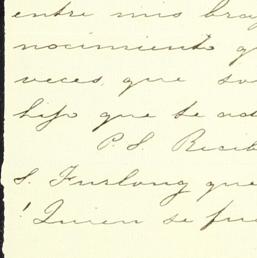 entre mis braz
nocimiento q
veces, que so
hijo que te ad
P. S. Recib
S. Furlong que
! Quien se fue